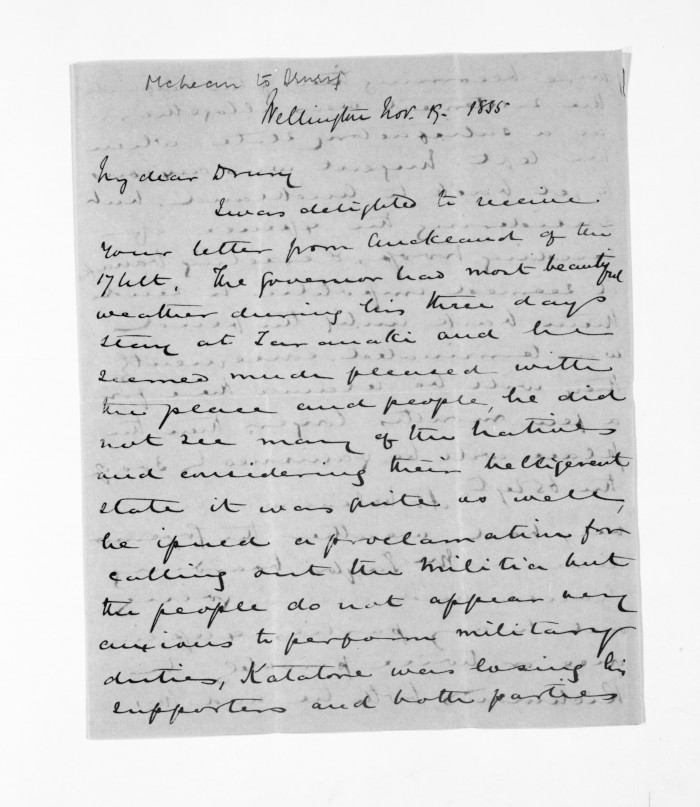 McLean to Drury
Wellington Nov. 19. 1855
My dear Drury
I was delighted to receive
your letter from Auckland of the
17 Ult. The Governor had most beautiful
weather during his three days
stay at Taranaki and he
seemed much pleased with
the place and people, he did
not see many of the natives
and considering their belligerent
state it was quite as well,
he issued a proclamation for
calling out the militia but
the people do not appear very
anxious to perform military
duties, Katatore was losing his
supporters and both parties